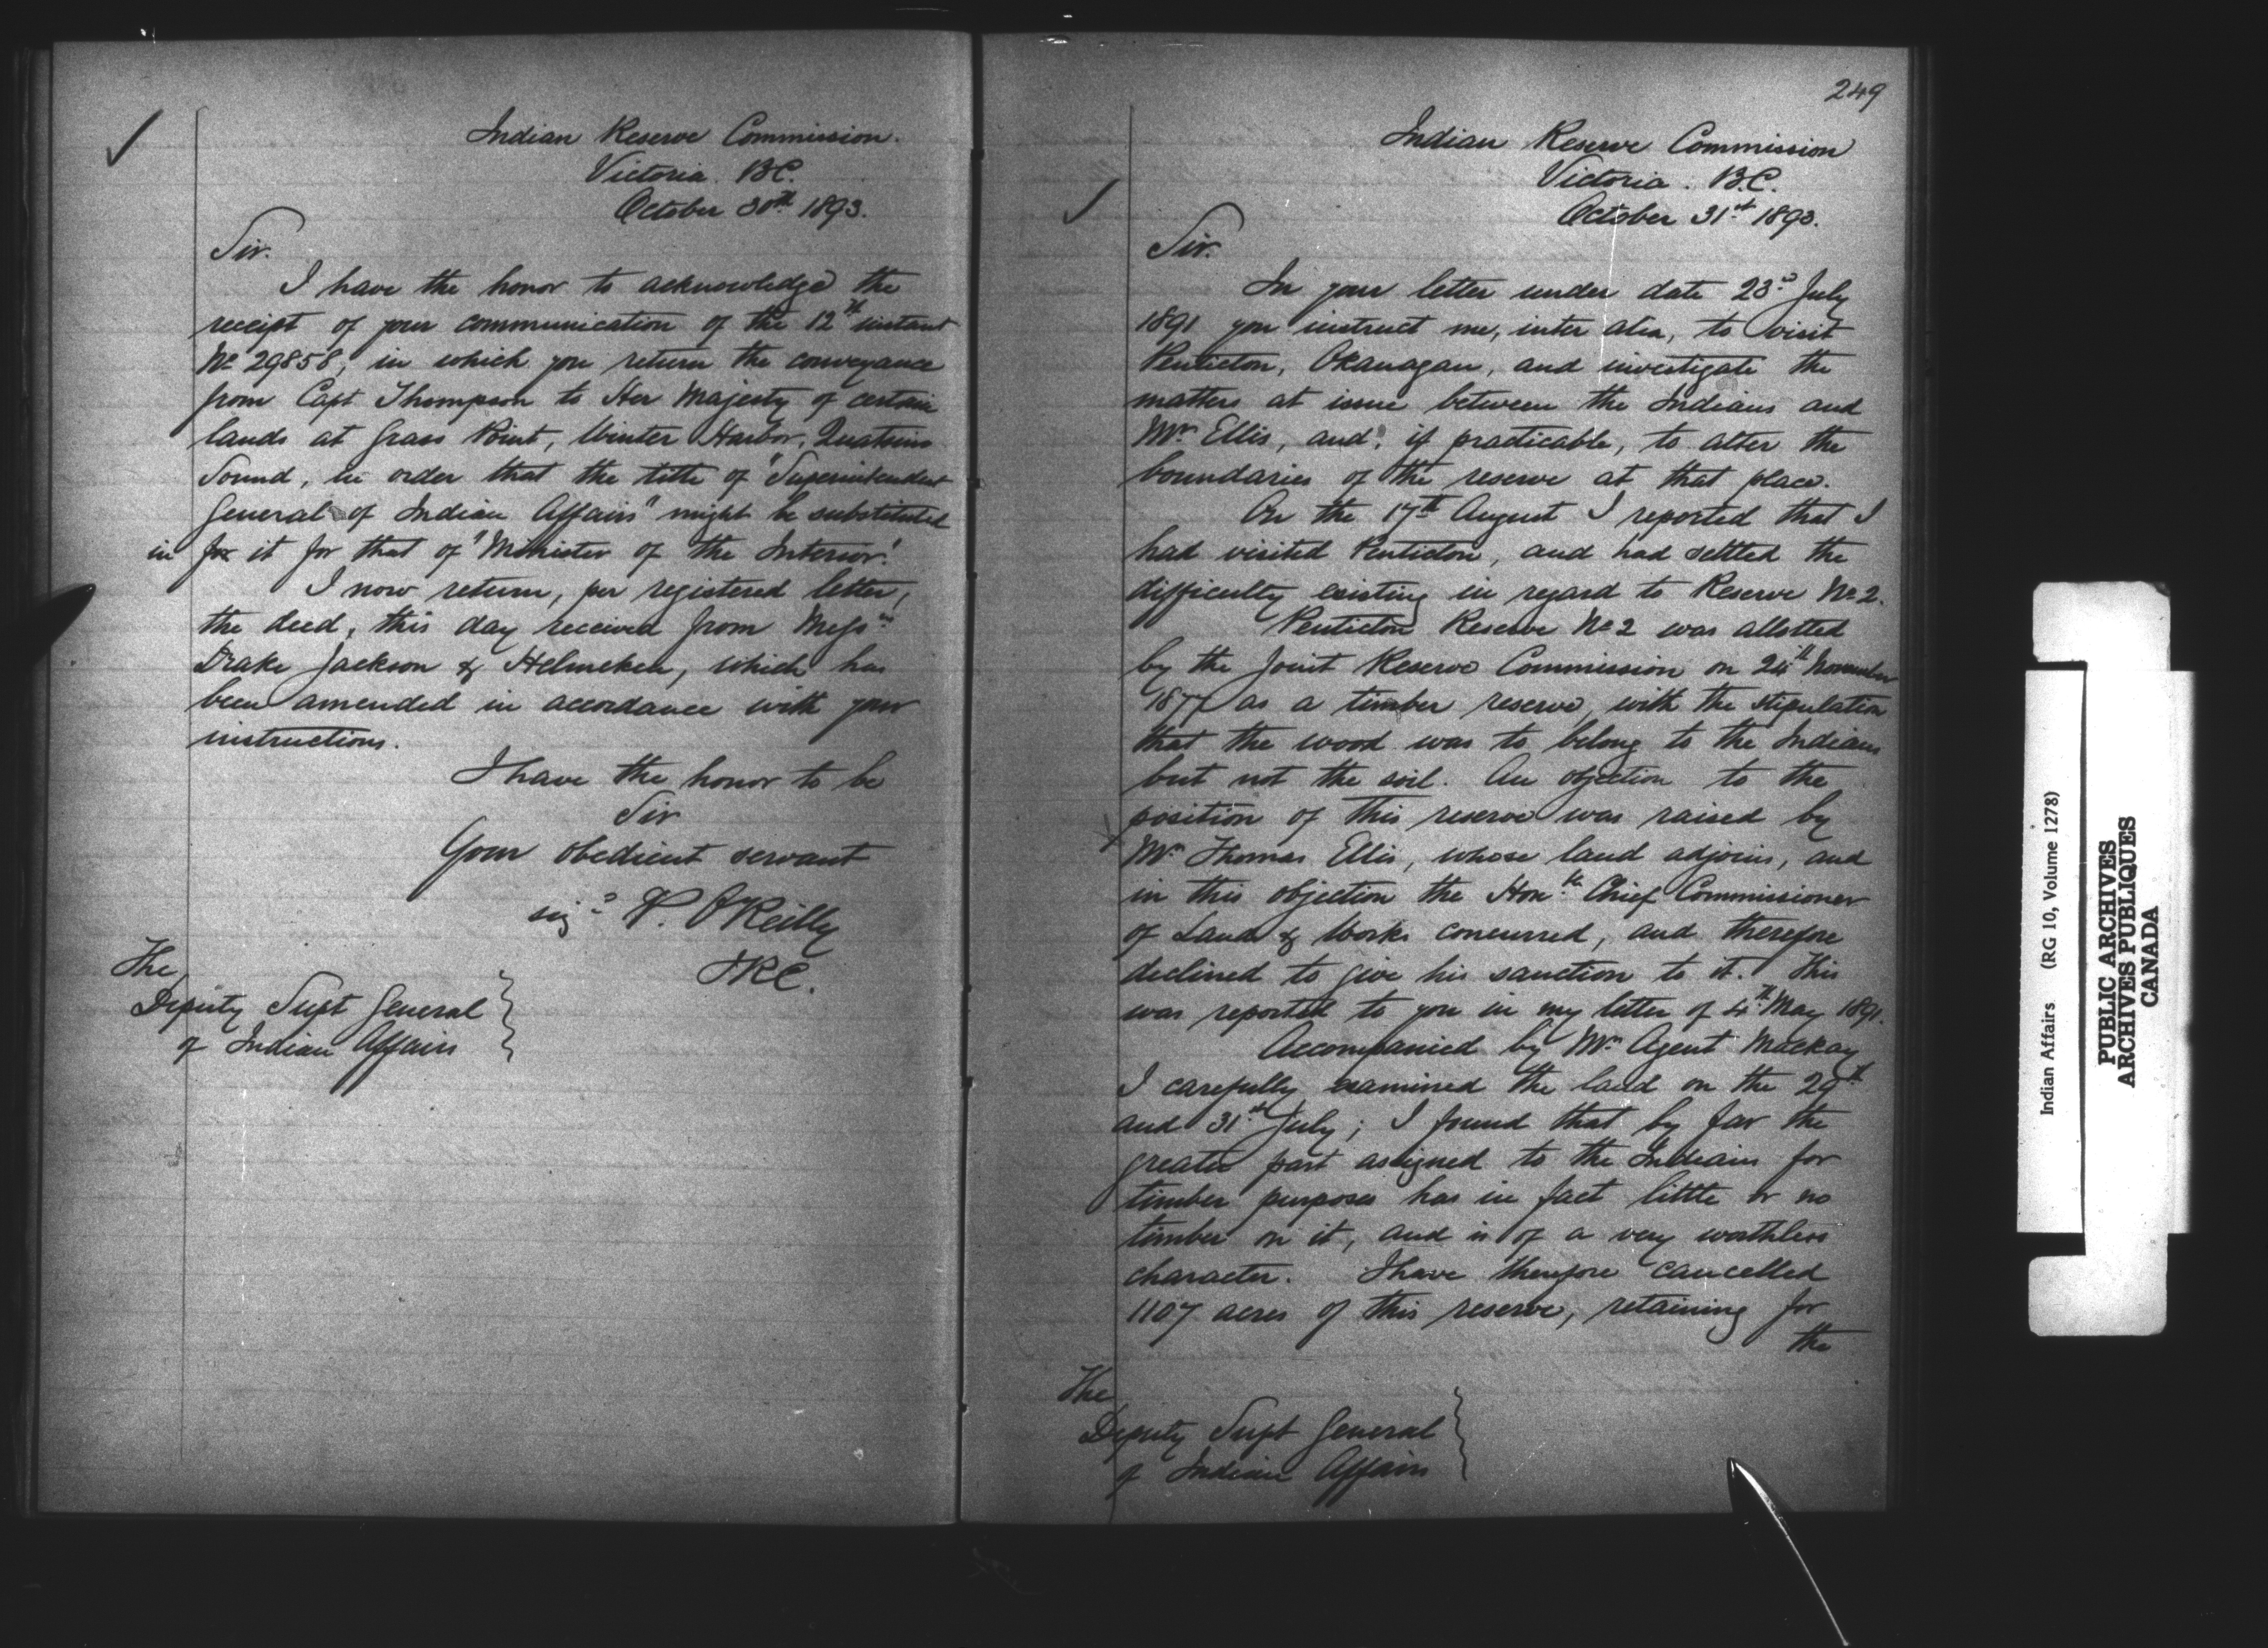 Indian Reserve Commission.
Victoria. B.C.
October 30th 1893.
Sir.
I have the honor to acknowledge the
receipt of your communication of the 12th instant
No 29858, in which you return the conveyance
from Capt Thompson to Her Majesty of certain
lands at Grass Point, Winter Harbor, Quatsino
Sound, in order that the title of "Superintendent
General of Indian Affairs" might be substituted
in for it for that of "Minister of the Interior".
I now return, per registered letter,
the deed, this day received from Messrs
Drake Jackson & Helmcken, which has
been amended in accordance with your
instructions.
I have the honor to be
Sir
Your obedient servant
sigd P. O'Reilly
I.R.C.
The
Deputy Supt General
of Indian Affairs
249
Indian Reserve Commission
Victoria. B.C.
October 31st 1893.
Sir.
In your letter under date 23d July
1891 you instruct me, inter alia, to visit
Penticton, Okanagan, and investigate the
matters at issue between the Indians and
Mr Ellis, and, if practicable, to alter the
boundaries of the reserve at that place.
On the 17th August I reported that I
had visited Penticton, and had settled the
difficulty existing in regard to Reserve No 2.
Penticton Reserve No 2 was allotted
by the Joint Reserve Commission on 24th November
1877 as a timber reserve, with the stipulation
that the wood was to belong to the Indians
but not the soil. An objection to the
position of this reserve was raised by
Mr Thomas Ellis, whose land adjoins, and
in this objection the Honble Chief Commissioner
of Lands & Works concurred, and therefore
declined to give his sanction to it. This
was reported to you in my letter of 4th May 1891.
Accompanied by Mr Agent Mackay
I carefully examined the land on the 29th
and 31st July; I found that by far the
greater part assigned to the Indians for
timber purposes has in fact little or no
timber on it, and is of a very worthless
character. I have therefore cancelled
1107 acres of this reserve, retaining for
the
The
Deputy Supt General
of Indian Affairs
Indian Affairs (RG 10, Volume 1278)
PUBLIC ARCHIVES
ARCHIVES PUBLIQUES
CANADA